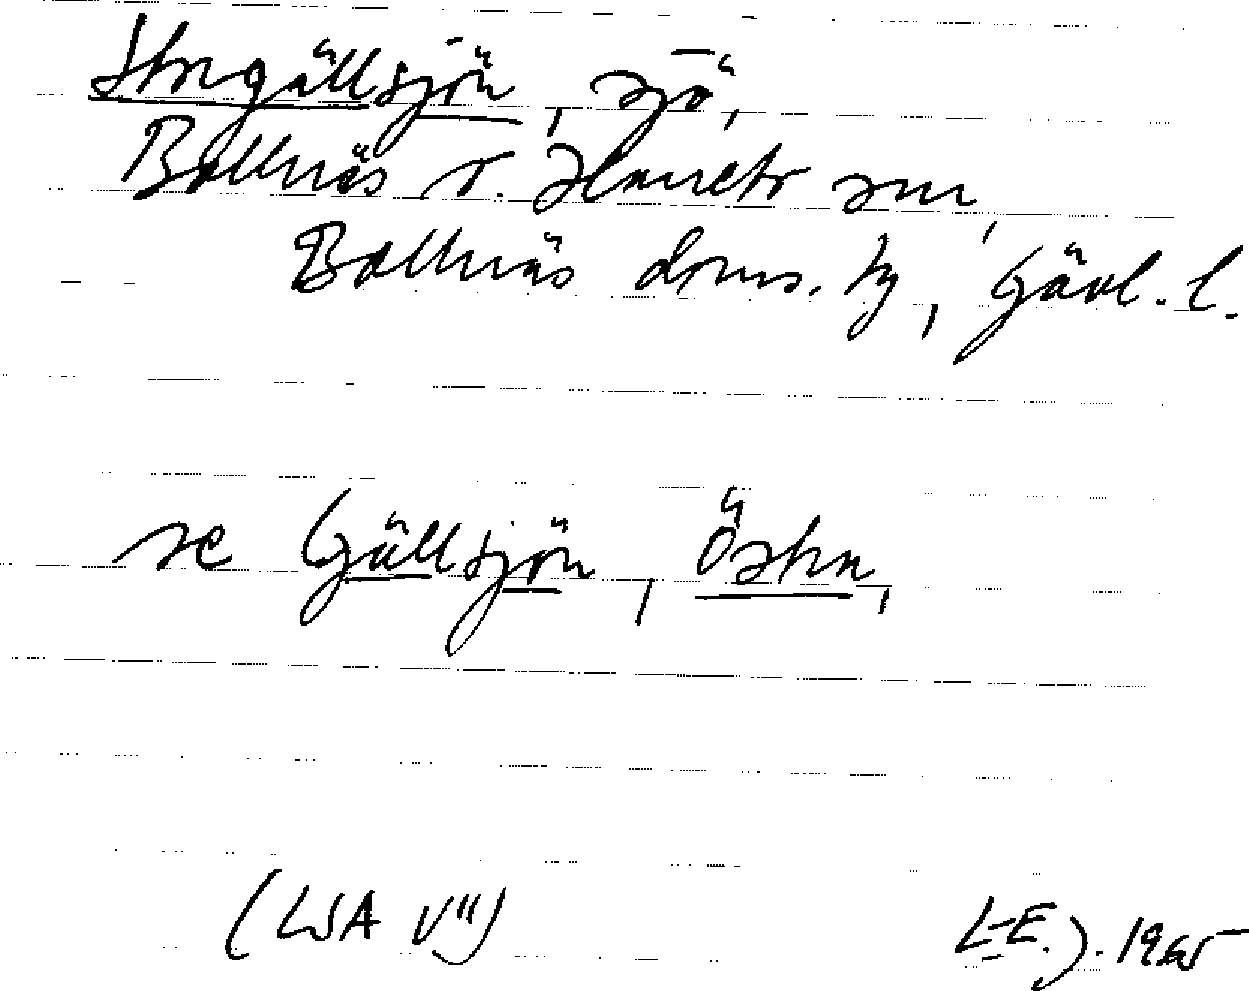 Storgällsjön, sjö,
Bollnäs o. Hanebo snr,
Bollnäs doms. hg, Gävl. l.
se Gällsjön, Östra,
(LSA V¹¹)
L-E.J. 1965